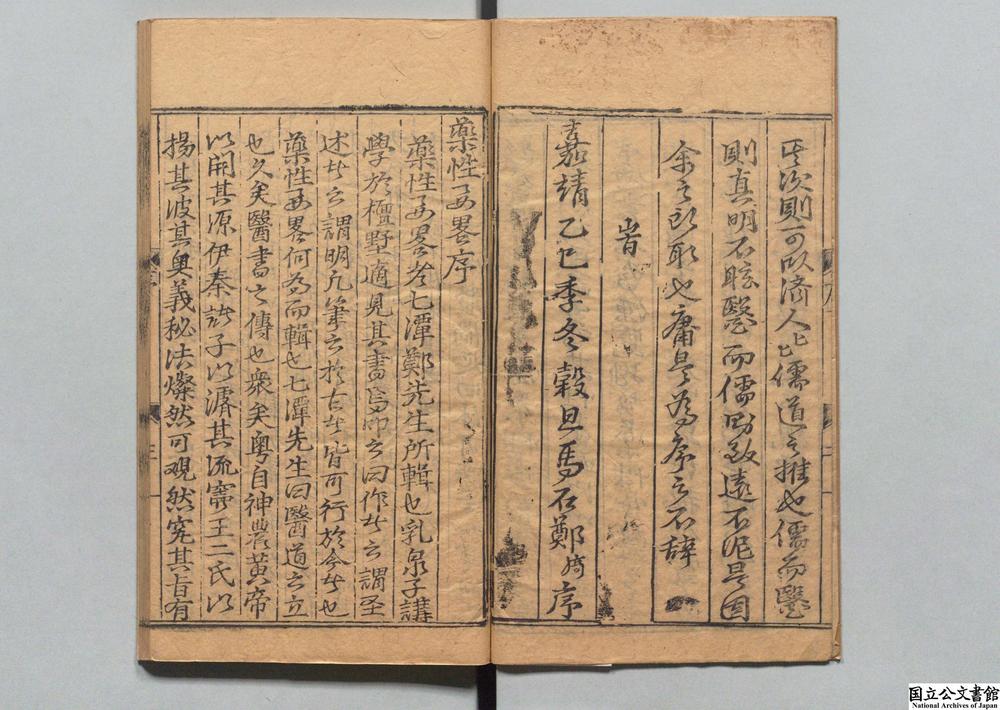 其次則可以济人人儒道之推也儒而醫
則真明不眩醫而儒則致遠不泥是固
余之所取也庸是為序之不辞
旹
嘉靖乙巳季冬穀旦馬石鄭 序
藥性要畧序
藥性要畧者七潭鄭先生所輯也乳泉子講
學於檀墅適見其書焉 之曰作者之謂聖
述者之謂明凡筆之於古者皆可行於今者也
藥性要畧何為而輯也七潭先生曰醫道之立
也久矣醫書之傳也衆矣粤自神農黄帝
以開其源伊秦諸子以濬其流 王二氏以
揚其波其奥義秘法燦然可觀然究其旨有
国立公文書館
National Archives of Japan